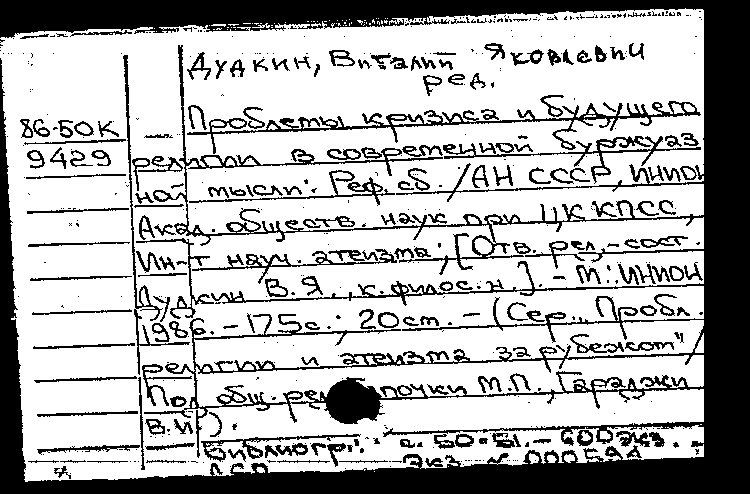 Дудкин, Виталий Яковлевич
ред.
86-50К
9429
Проблемы кризиса и будущего
религии в современной буржуаз
ной мысли: Реф. сб. / АН СССР, ИНИОН
Акад. обществ. наук при ЦК КПСС,
Ин-т науч. атеизма; [Отв. ред.-сост.
Дудкин В.Я., к.филос.н.]. - М.: ИНИОН
1986. - 175с.; 20см. - (Сер. "Пробл.
религии и атеизма за рубежом" /
Под общ. ред. почки М.П., Гараджи
В.И.).
Библиогр.: с. 50-51. - 600 экз.
экз. № 000594